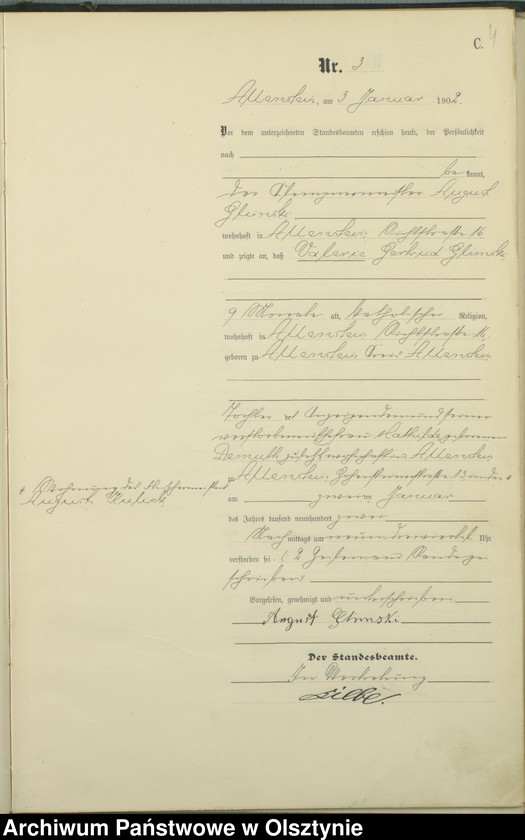 C. 4
Nr. 3
Allenstein, am 3 Januar 1902.
Vor dem unterzeichneten Standesbeamten erschien heute, der Persönlichkeit
nach
be kannt,
der August
Glinski
wohnhaft in Allenstein, Richtstraße 16
und zeigte an, daß Valerie Gertrud Glinski
9 Monate alt, katholischer Religion,
wohnhaft in Allenstein Richtstraße 16,
geboren zu Allenstein Kreis Allenstein,
Tochter des Anzeigenden und seiner
verstorbenen Ehefrau Mathilde geborenen
Demuth, zuletzt wohnhaft in Allenstein
zu Allenstein, 13 in der +
+ Wohnung des Fleischermeisters
August
am zweiten Januar
des Jahres tausend neunhundert zwei
Nachmittags um Uhr
verstorben sei. (
schrieben)
Vorgelesen, genehmigt und unterschrieben
August Glinski
Der Standesbeamte.
In Vertretung
Archiwum Państwowe w Olsztynie